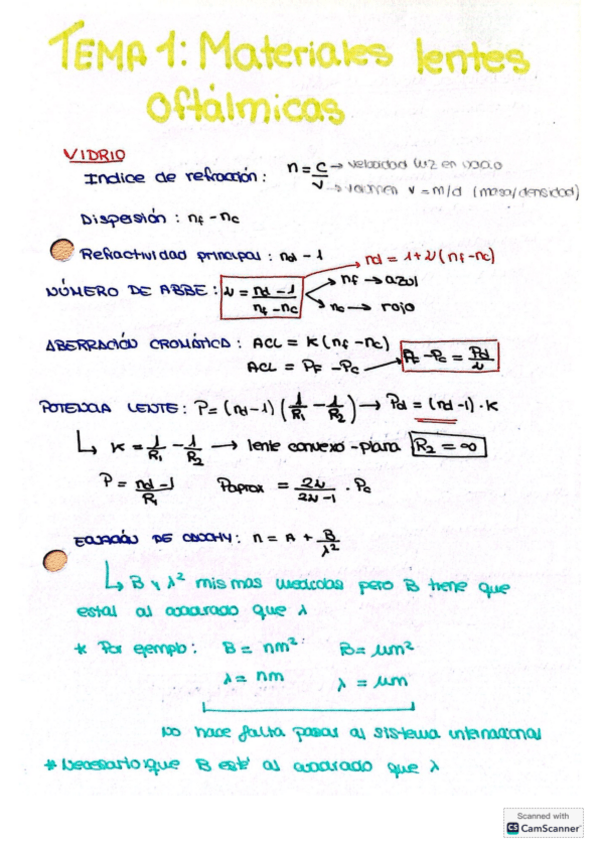 TEMA 1: Materiales lentes
oftálmicas
VIDRIO
Indice de refracción: n = c/v → velocidad luz en vacio
→ volumen v = m/d (masa/densidad)
Dispersión: nf - nc
Refractividad principal: nd - 1
nd = 1 + ν (nf - nc)
NÚMERO DE ABBE: ν = (nd - 1)/(nf - nc)
nf → azul
nc → rojo
ABERRACIÓN CROMÁTICA: ACL = K (nf - nc)
ACL = PF - PC → PF - PC = Pd/ν
POTENCIA LENTE: P = (nd - 1) (1/R1 - 1/R2) → Pd = (nd - 1) · K
↳ K = 1/R1 - 1/R2 → lente convexo-plana R2 = ∞
P = (nd - 1)/R1 Paprox = 2ν/(2ν - 1) · Pc
ECUACIÓN DE CAUCHY: n = A + B/λ²
↳ B y λ² mismas medidas pero B tiene que
estar al cuadrado que λ
* Por ejemplo: B = nm² B = μm²
λ = nm λ = μm
No hace falta pasar al sistema internacional
* Necesario que B esté al cuadrado que λ
Scanned with
CS CamScanner